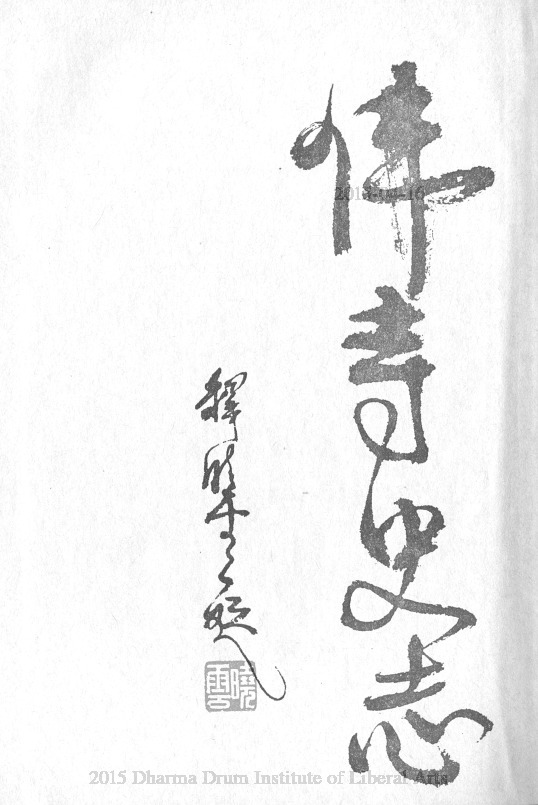 佛寺史志
釋曉雲題
曉雲
2015 Dharma Drum Institute of Liberal Arts